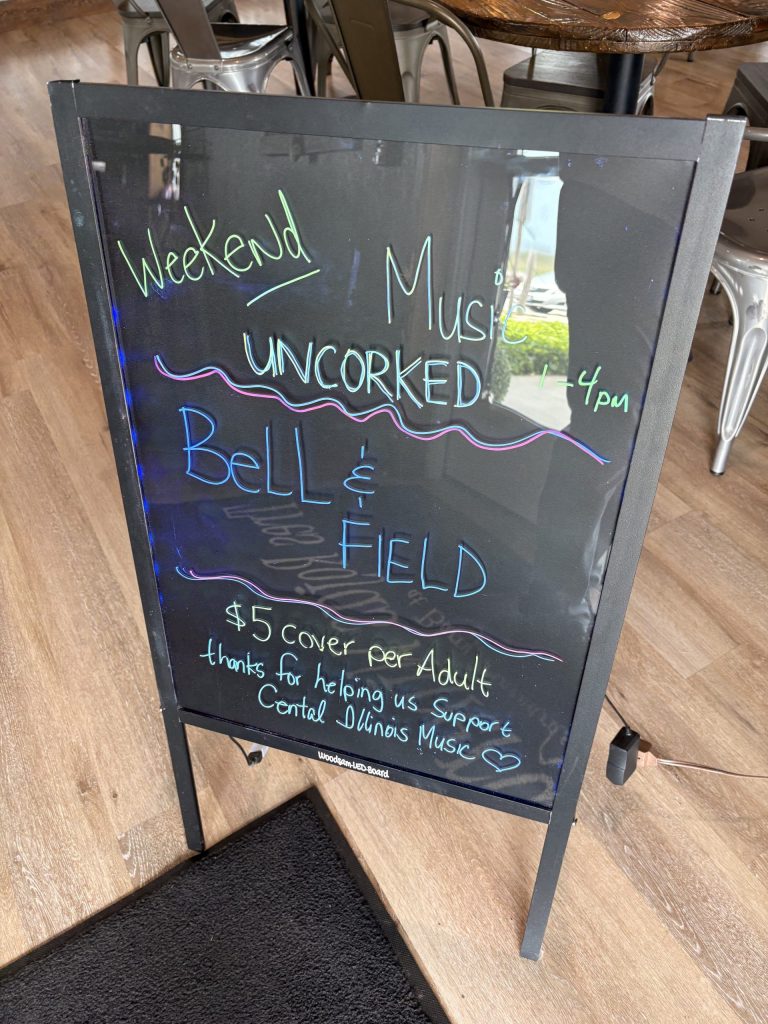 Weekend
Music
UNCORKED 1-4pm
BeLL &
FIELD
$5 cover per Adult
thanks for helping us Support
Cental Illinois Music ♡
Woodsam-LED-Board